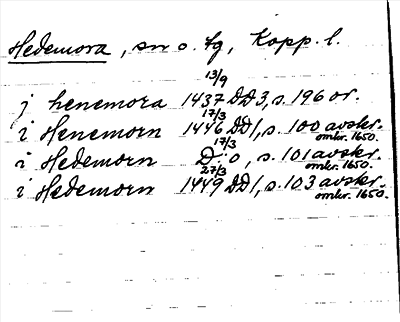 Hedemora, sn o. fg, Kopp. l.
13/9
j henemora 1437 DD3, s. 196 or.
17/3
i Henemorn 1446 DD1, s. 100 avskr. omkr. 1650.
17/3
i Hedemorn D:o, s. 101 avskr. omkr. 1650.
27/3
i Hedemorn 1449 DD1, s. 103 avskr. omkr. 1650.